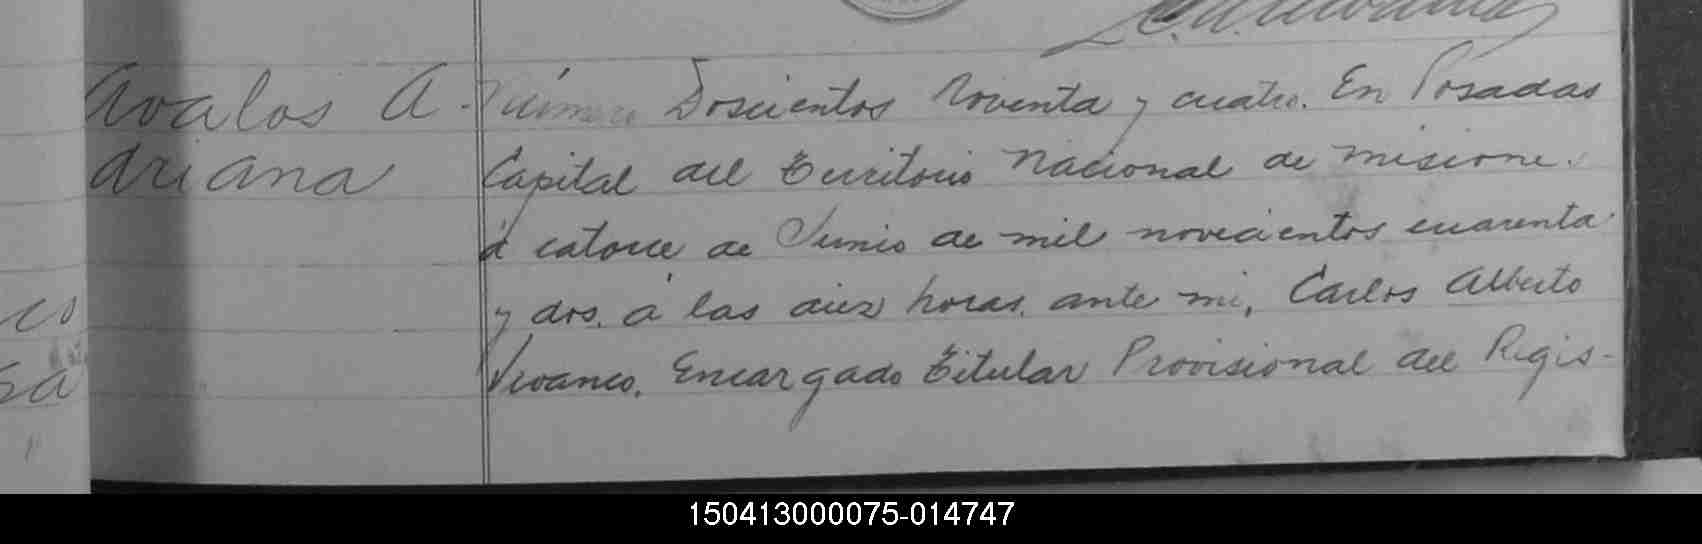 Avalos A-
driana
Número Doscientos Noventa y cuatro. En Posadas
Capital del Territorio Nacional de Misiones.
á catorce de Junio de mil novecientos cuarenta
y dos. á las diez horas. ante mi, Carlos Alberto
Vivanco. Encargado Titular Provisional del Regis-
co
sa
150413000075-014747